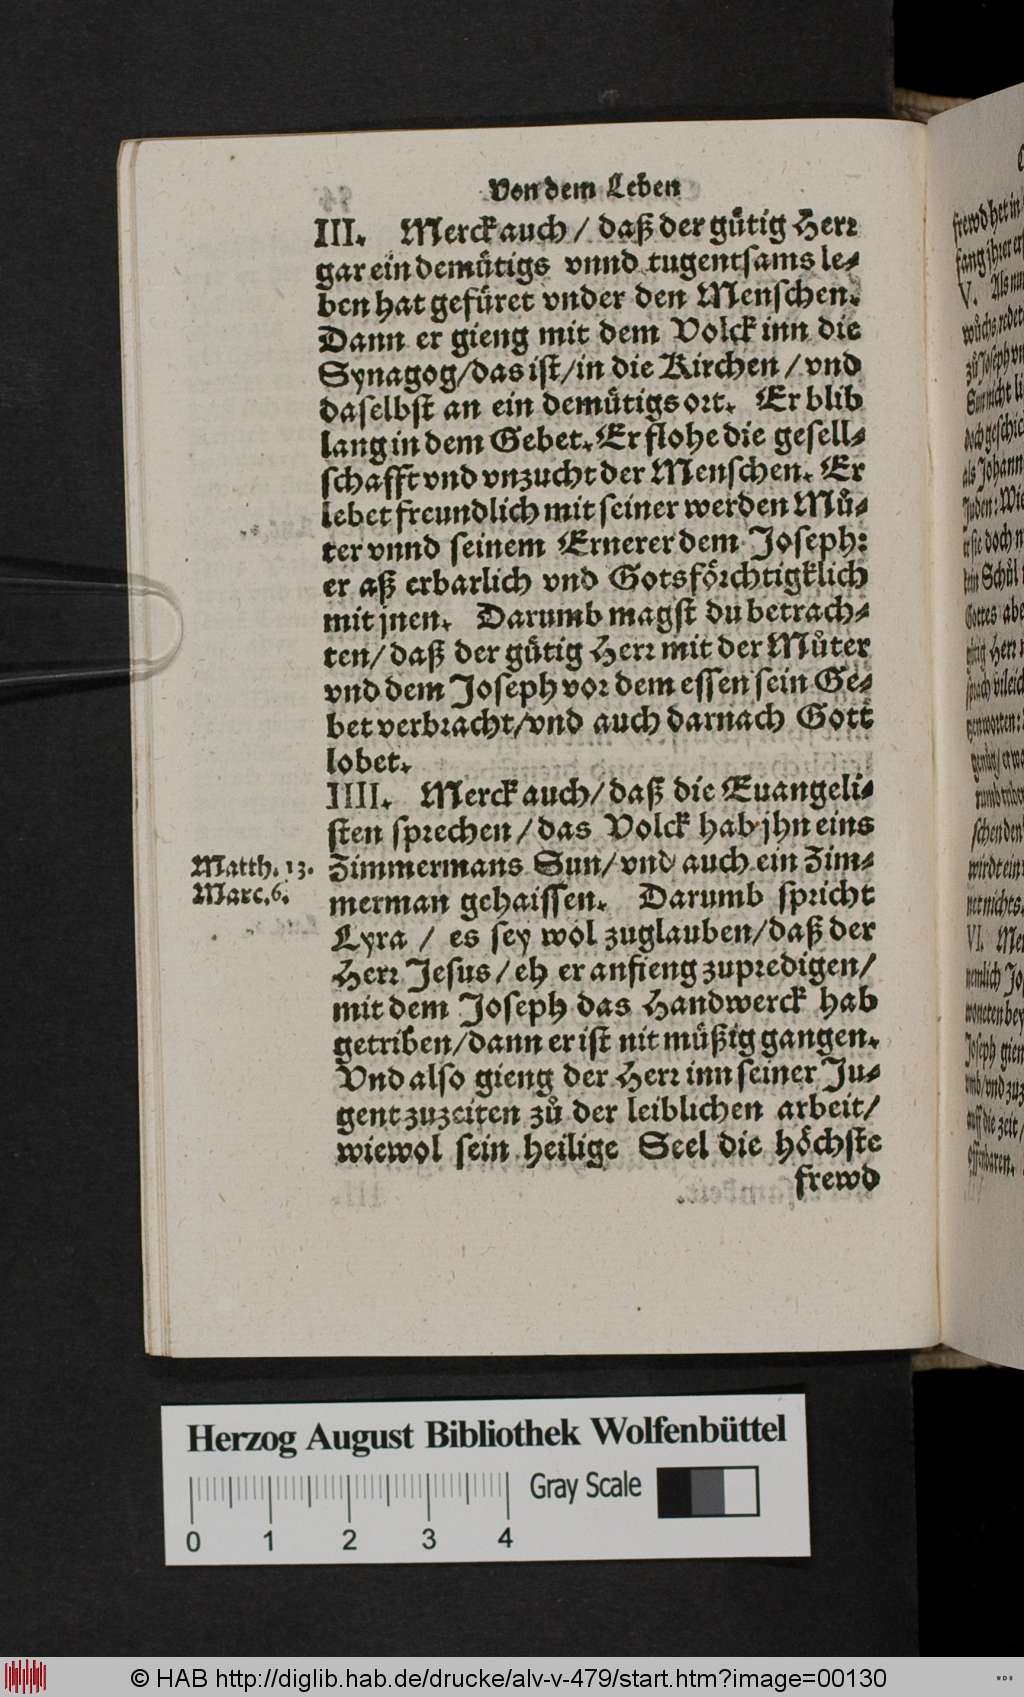 Von dem Leben
III. Merck auch / daß der guͤtig Herr
gar ein demuͤtigs vnnd tugentsams le-
ben hat gefuͤret vnder den Menschen.
Dann er gieng mit dem Volck inn die
Synagog/das ist/in die Kirchen / vnd
daselbst an ein demuͤtigs ort. Er blib
lang in dem Gebet. Er flohe die gesell-
schafft vnd vnzucht der Menschen. Er
lebet freundlich mit seiner werden Muͦ-
ter vnnd seinem Ernerer dem Joseph:
er aß erbarlich vnd Gotsfoͤrchtigklich
mit jnen. Darumb magst du betrach-
ten/ daß der guͤtig Herr mit der Muͦter
vnd dem Joseph vor dem essen sein Ge-
bet verbracht/vnd auch darnach Gott
lobet.
IIII. Merck auch/daß die Euangeli-
sten sprechen / das Volck hab jhn eins
Matth. 13. Zimmermans Sun/ vnd auch ein Zim-
Marc. 6. merman gehaissen. Darumb spricht
Lyra / es sey wol zuglauben/daß der
Herr Jesus / eh er anfieng zupredigen/
mit dem Joseph das Handwerck hab
getriben/dann er ist nit muͤßig gangen.
Vnd also gieng der Herr inn seiner Ju-
gent zuzeiten zuͦ der leiblichen arbeit/
wiewol sein heilige Seel die hoͤchste
frewd
frewd het in
V. Als
wuͦchs redet
zuͦ Joseph
Sun nicht
doch
als Johann
Juden: Wie
er sie doch
kein Schuͦl
Gottes abe
guͤtig Herr
sprach
er wo
schen den
wirdt ein
net nichts.
VI. Mer
nemlich Jo
woneten bey
Joseph gien
vmb/vnd zuz
auff die zeit/
offenbaren.
Herzog August Bibliothek Wolfenbüttel
Gray Scale
0 1 2 3 4
© HAB http://diglib.hab.de/drucke/alv-v-479/start.htm?image=00130